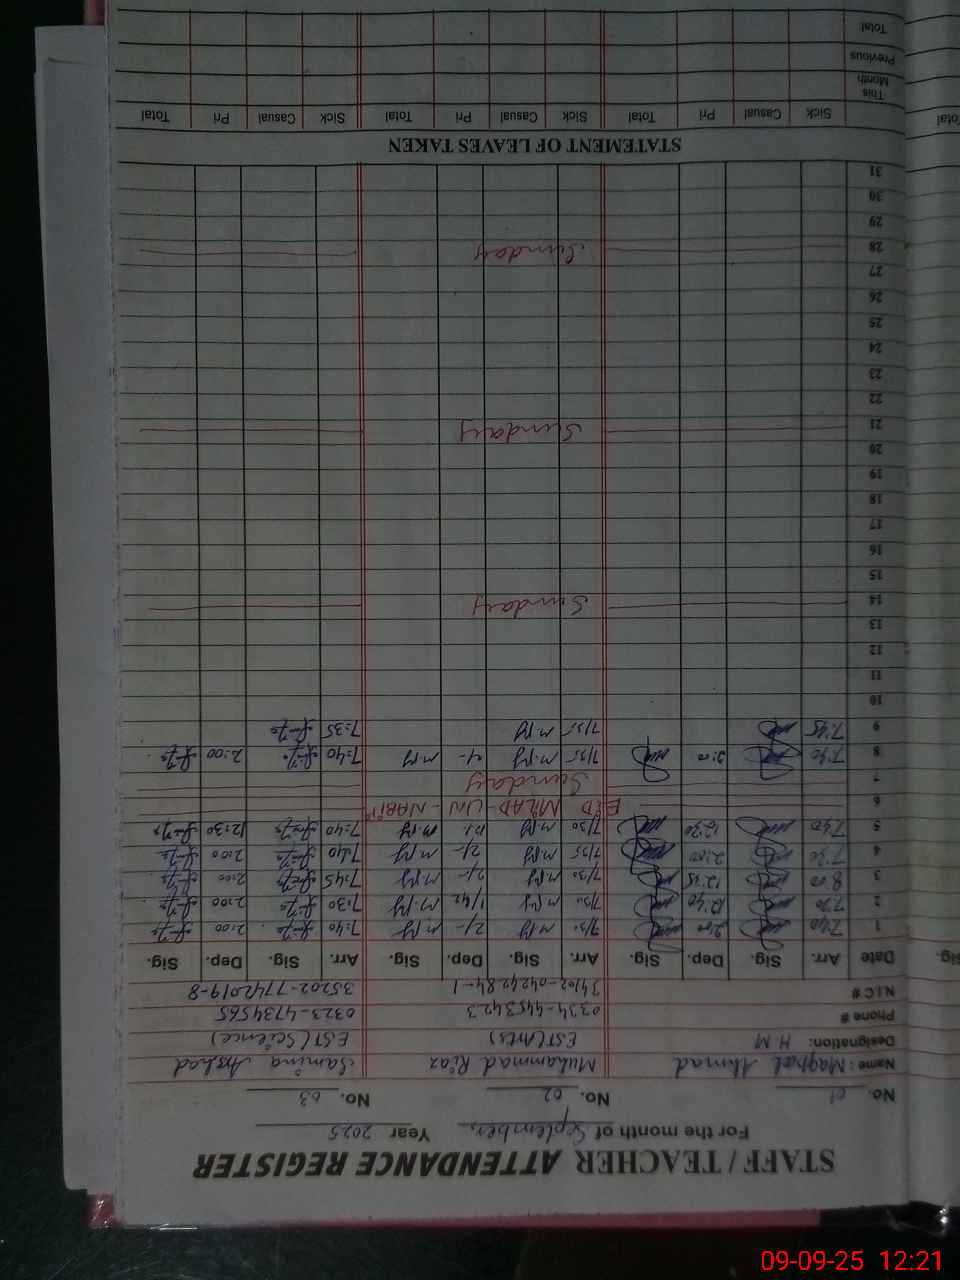 STAFF / TEACHER ATTENDANCE REGISTER
For the month of September, Year 2025
No. 01 No. 02 No. 03
Name: Maqbool Ahmad Muhammad Riaz Samina Arshad
Designation: H M EST (Arts) EST (Science)
Phone # 0334-4453423 0323-4734565
N.I.C # 34102-0424284-1 35202-7742019-8
Date Arr. Sig. Dep. Sig. Arr. Sig. Dep. Sig. Arr. Sig. Dep. Sig.
1 7:40 2:00 7/30 2/- 7:40 2:00
2 7:30 12:40 7/30 1/42 7:30 2:00
3 8:00 12:45 7/30 2/- 7:45 2:00
4 7:30 2:00 7/35 2/- 7:40 2:00
5 7:40 12:30 7/30 7:40 12:30
6 EID MILAD-UN-NABI
7 Sunday
8 7:30 2:00 7/35 2/- 7:40 2:00
9 7:45 7/35 7:35
10
11
12
13
14 Sunday
15
16
17
18
19
20
21 Sunday
22
23
24
25
26
27
28 Sunday
29
30
31
STATEMENT OF LEAVES TAKEN
Sick Casual Pri Total Sick Casual Pri Total Sick Casual Pri Total
This Month
Previous
Total
Sig.
Total
09-09-25 12:21